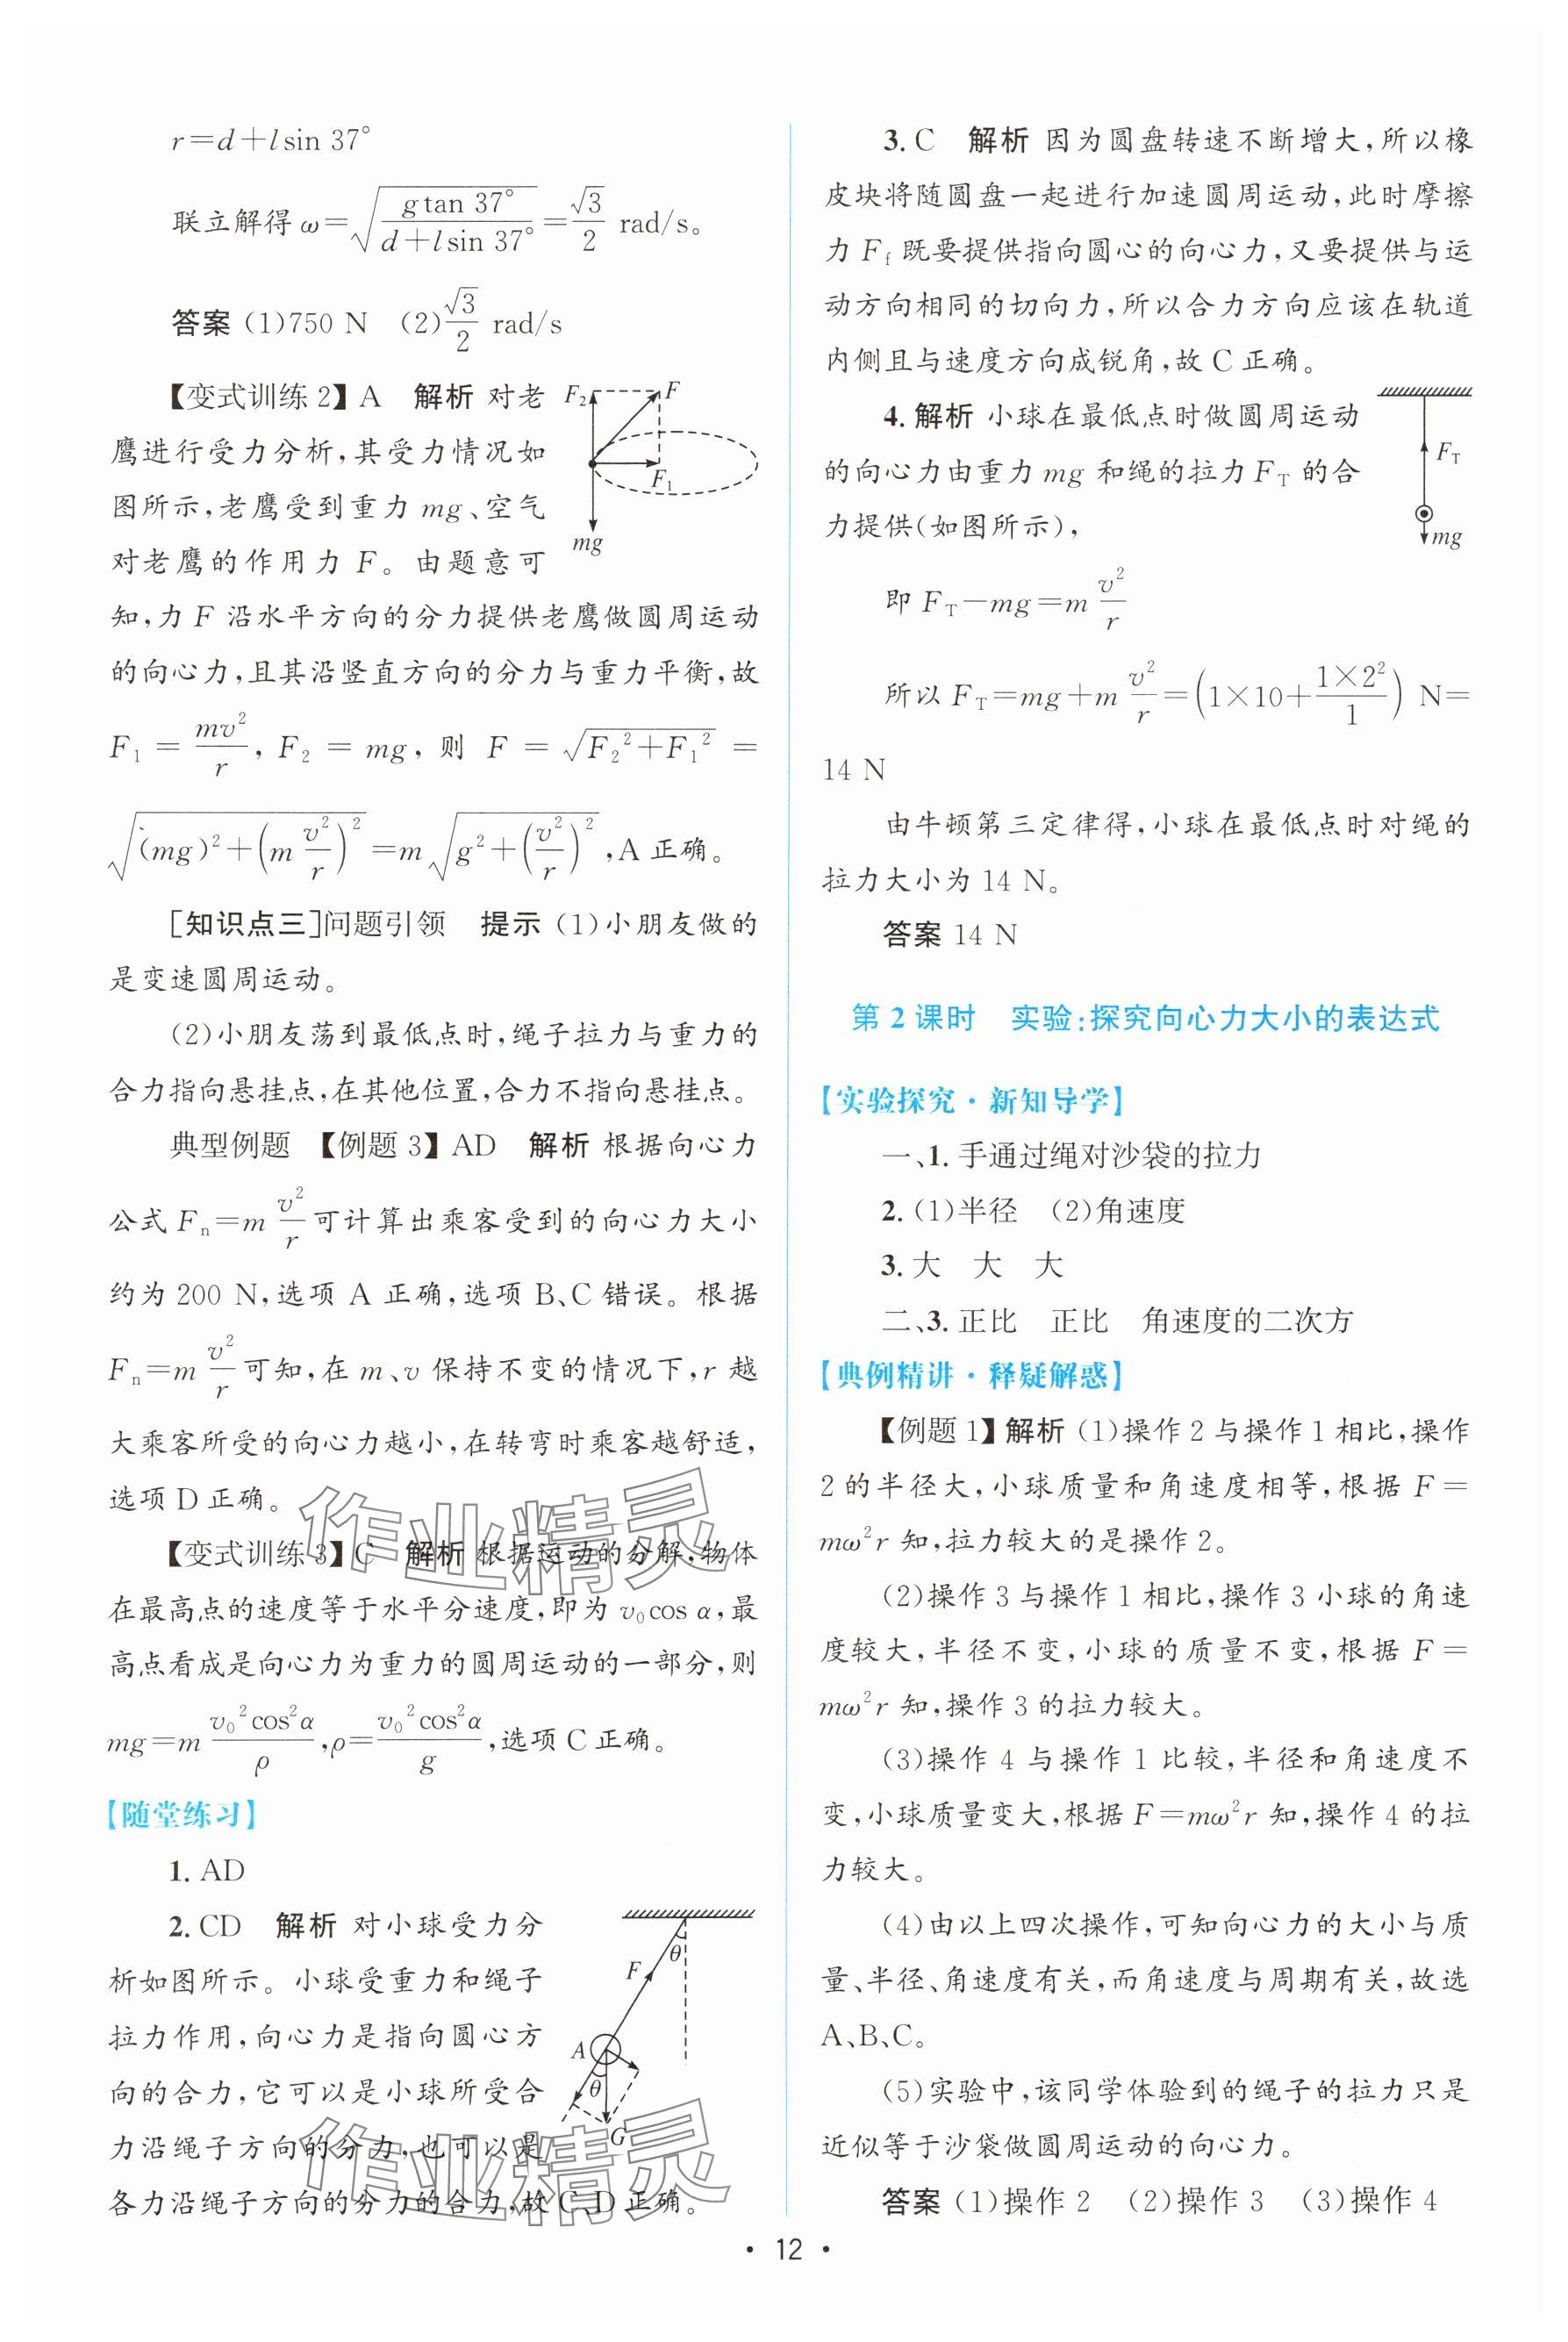 r=d+lsin 37°
联立解得 ω=√(gtan 37°/(d+lsin 37°))=√3/2 rad/s。
答案 (1)750 N　(2)√3/2 rad/s
【变式训练 2】A　解析 对老
鹰进行受力分析,其受力情况如
图所示,老鹰受到重力 mg、空气
对老鹰的作用力 F。由题意可
F₂ F F₁ mg
知,力 F 沿水平方向的分力提供老鹰做圆周运动
的向心力,且其沿竖直方向的分力与重力平衡,故
F₁ = mv²/r, F₂ = mg, 则 F = √(F₂²+F₁²) =
√((mg)²+(m v²/r)²)=m√(g²+(v²/r)²),A 正确。
[知识点三]问题引领　提示 (1)小朋友做的
是变速圆周运动。
(2)小朋友荡到最低点时,绳子拉力与重力的
合力指向悬挂点,在其他位置,合力不指向悬挂点。
典型例题　【例题 3】AD　解析 根据向心力
公式 Fₙ=m v²/r 可计算出乘客受到的向心力大小
约为 200 N,选项 A 正确,选项 B、C 错误。根据
Fₙ=m v²/r 可知,在 m、v 保持不变的情况下,r 越
大乘客所受的向心力越小,在转弯时乘客越舒适,
选项 D 正确。
【变式训练 3】C　解析 根据运动的分解,物体
在最高点的速度等于水平分速度,即为 v₀cos α,最
高点看成是向心力为重力的圆周运动的一部分,则
mg=m v₀²cos²α/ρ,ρ=v₀²cos²α/g,选项 C 正确。
【随堂练习】
1. AD
2. CD　解析 对小球受力分
析如图所示。小球受重力和绳子
拉力作用,向心力是指向圆心方
向的合力,它可以是小球所受合
力沿绳子方向的分力,也可以是
各力沿绳子方向的分力的合力,故 C、D 正确。
θ F A θ G
3. C　解析 因为圆盘转速不断增大,所以橡
皮块将随圆盘一起进行加速圆周运动,此时摩擦
力 F_f 既要提供指向圆心的向心力,又要提供与运
动方向相同的切向力,所以合力方向应该在轨道
内侧且与速度方向成锐角,故 C 正确。
4. 解析 小球在最低点时做圆周运动
的向心力由重力 mg 和绳的拉力 F_T 的合
力提供(如图所示),
F_T mg
即 F_T−mg=m v²/r
所以 F_T=mg+m v²/r=(1×10+1×2²/1) N=
14 N
由牛顿第三定律得,小球在最低点时对绳的
拉力大小为 14 N。
答案 14 N
第 2 课时　实验:探究向心力大小的表达式
【实验探究·新知导学】
一、1. 手通过绳对沙袋的拉力
2. (1)半径　(2)角速度
3. 大　大　大
二、3. 正比　正比　角速度的二次方
【典例精讲·释疑解惑】
【例题 1】解析 (1)操作 2 与操作 1 相比,操作
2 的半径大,小球质量和角速度相等,根据 F=
mω²r 知,拉力较大的是操作 2。
(2)操作 3 与操作 1 相比,操作 3 小球的角速
度较大,半径不变,小球的质量不变,根据 F=
mω²r 知,操作 3 的拉力较大。
(3)操作 4 与操作 1 比较,半径和角速度不
变,小球质量变大,根据 F=mω²r 知,操作 4 的拉
力较大。
(4)由以上四次操作,可知向心力的大小与质
量、半径、角速度有关,而角速度与周期有关,故选
A、B、C。
(5)实验中,该同学体验到的绳子的拉力只是
近似等于沙袋做圆周运动的向心力。
答案 (1)操作 2　(2)操作 3　(3)操作 4
作业精灵
作业精灵
· 12 ·